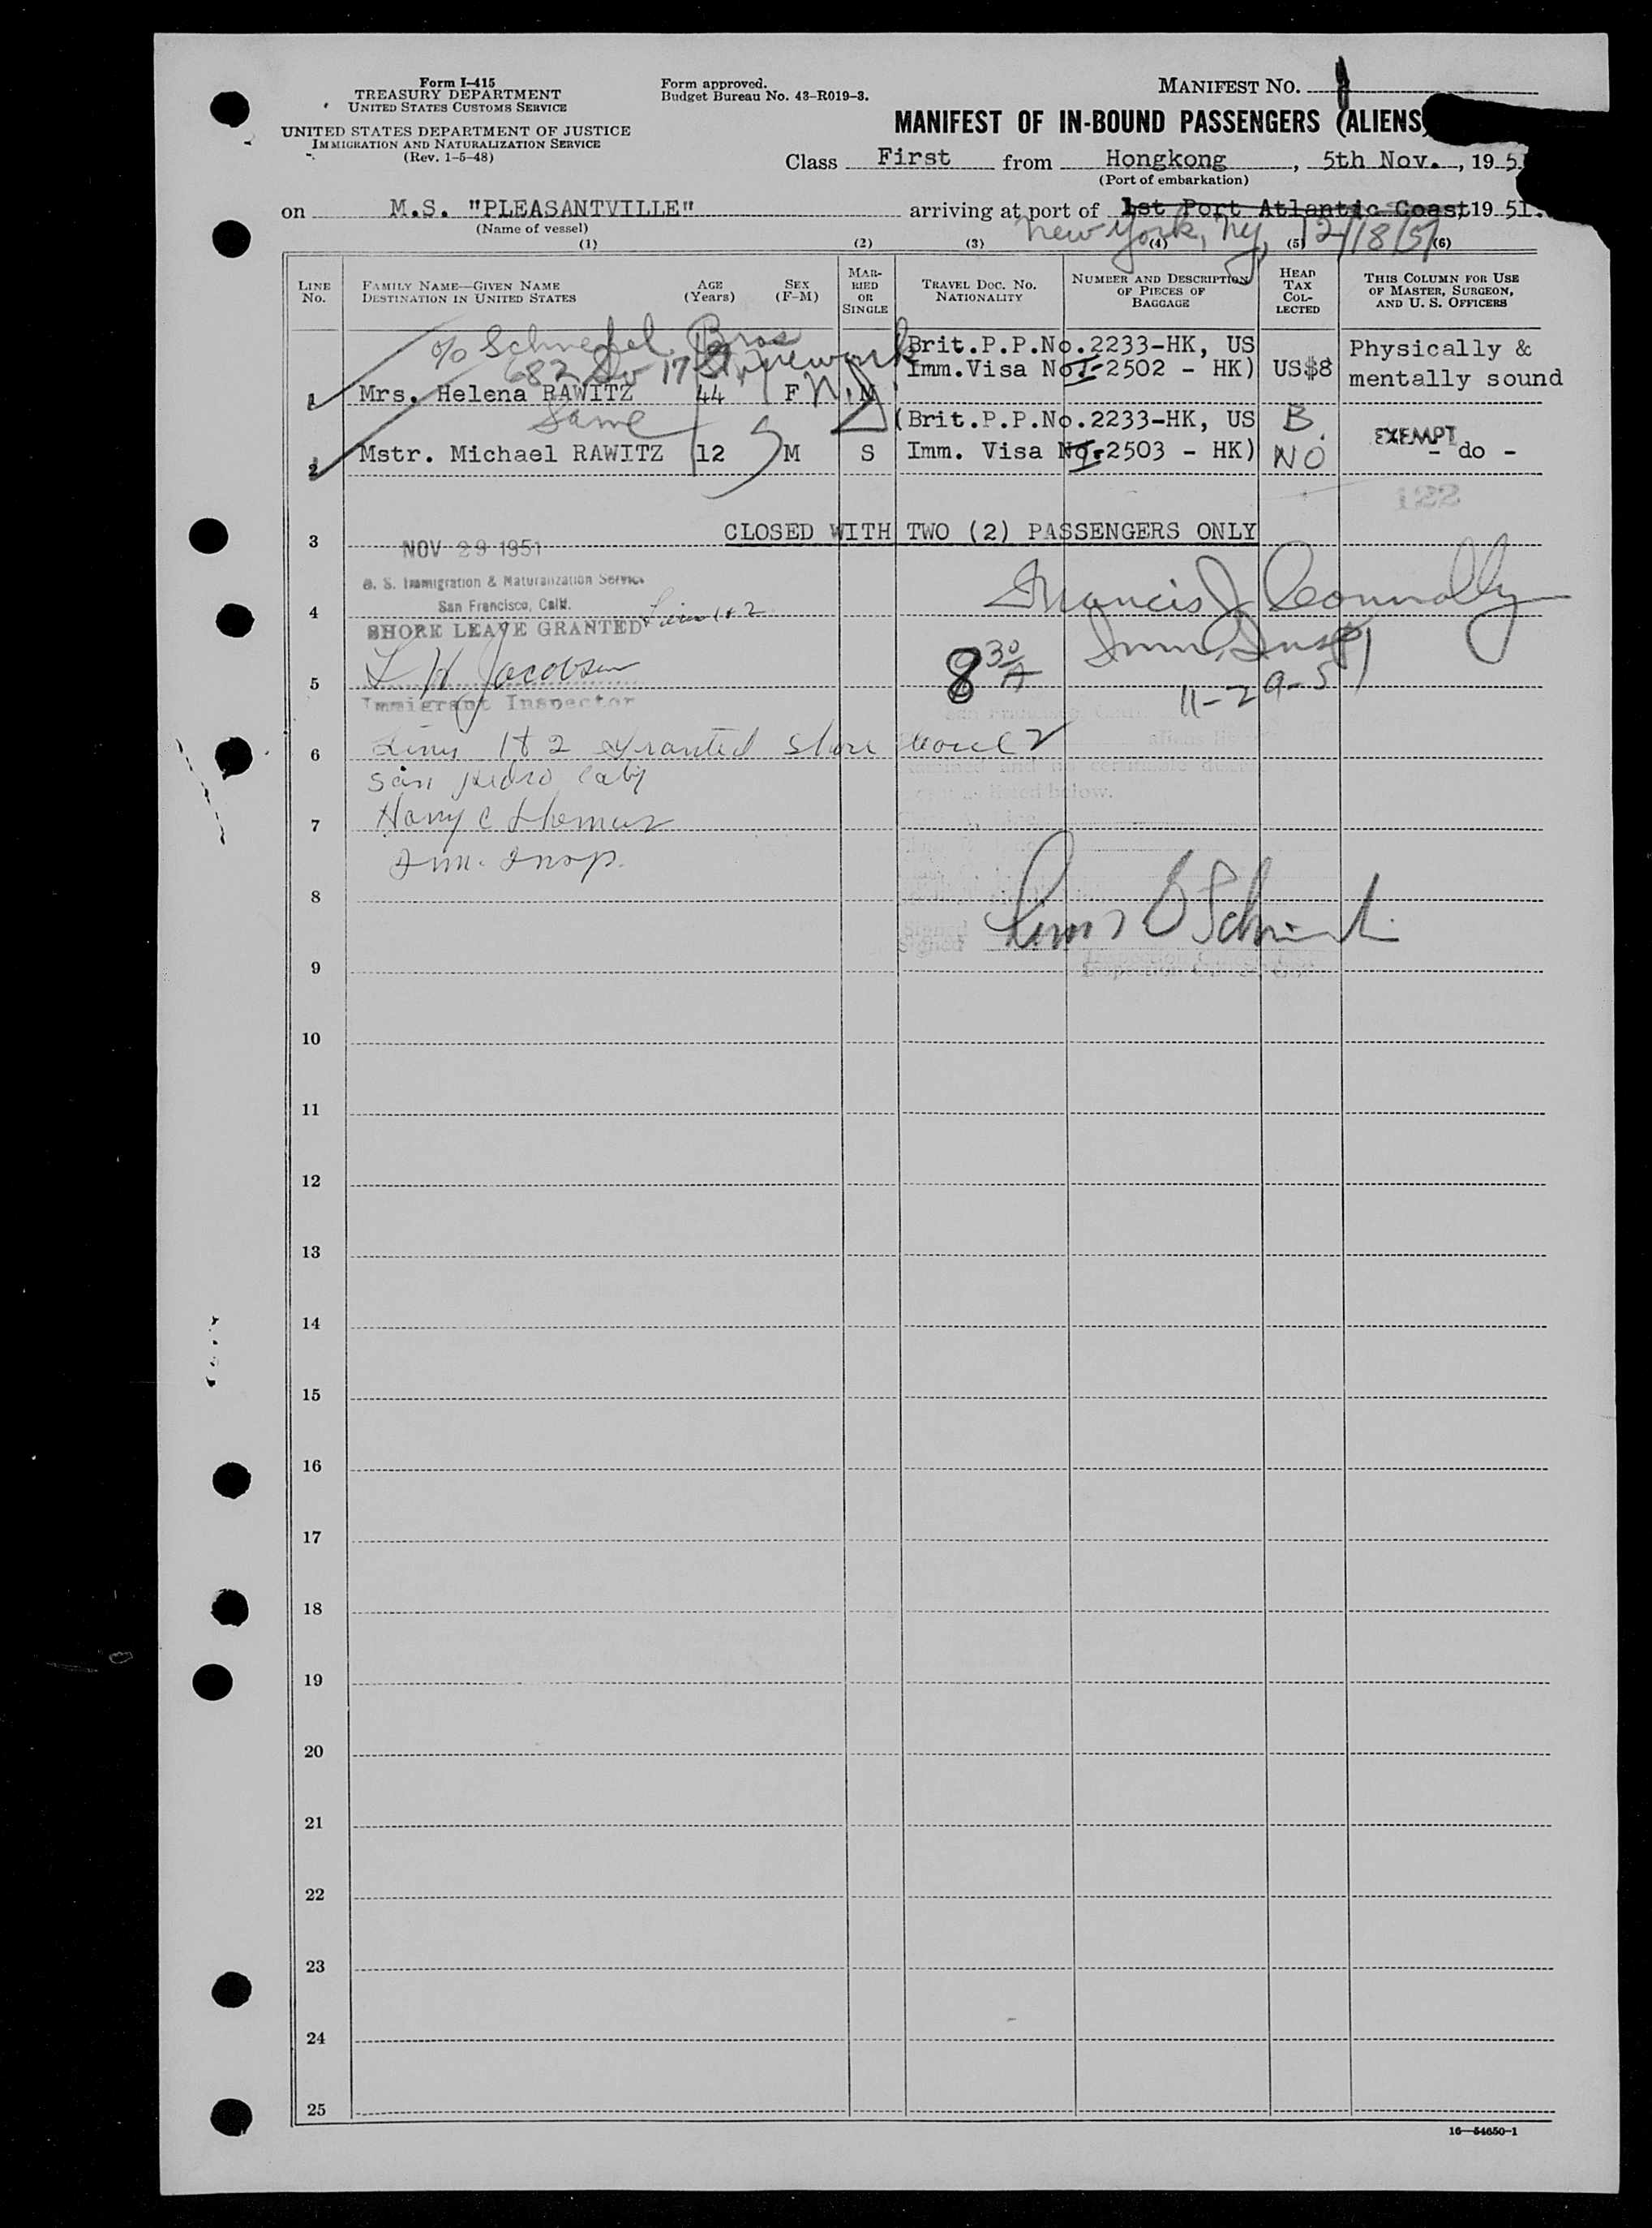 Form I-415
TREASURY DEPARTMENT
UNITED STATES CUSTOMS SERVICE
UNITED STATES DEPARTMENT OF JUSTICE
IMMIGRATION AND NATURALIZATION SERVICE
(Rev. 1-5-48)
Form approved.
Budget Bureau No. 43-R019-3.
MANIFEST NO.
MANIFEST OF IN-BOUND PASSENGERS (ALIENS)
Class First from Hongkong, 5th Nov., 195
(Port of embarkation)
on M.S. "PLEASANTVILLE" arriving at port of 1st Port Atlantic Coast, 1951.
(Name of vessel)
New York, NY, 12/18/51
(1) (2) (3) (4) (5) (6)
LINE NO.
FAMILY NAME—GIVEN NAME
DESTINATION IN UNITED STATES
AGE (Years)
SEX (F-M)
MARRIED OR SINGLE
TRAVEL DOC. NO. NATIONALITY
NUMBER AND DESCRIPTION OF PIECES OF BAGGAGE
HEAD TAX COLLECTED
THIS COLUMN FOR USE OF MASTER, SURGEON, AND U. S. OFFICERS
c/o Bros
682 So 17 St, Newark
N.J.
(Brit.P.P.No.2233-HK, US
Imm.Visa No I-2502 - HK) US$8
Physically &
mentally sound
1 Mrs. Helena RAWITZ 44 F M
Same
(Brit.P.P.No.2233-HK, US B.
2 Mstr. Michael RAWITZ 12 M S Imm. Visa No I-2503 - HK) NO EXEMPT - do -
122
3 CLOSED WITH TWO (2) PASSENGERS ONLY
NOV 29 1951
U. S. Immigration & Naturalization Service
San Francisco, Calif.
4 SHORE LEAVE GRANTED Lines 1 & 2
Francis J Connolly
Imm. Insp
L H Jacobsen
8 30/A
11-29-51
5
Immigrant Inspector
6 Lines 1 & 2 granted shore leave
San Pedro Calif
7 Harry C Thomas
Imm. Insp.
listed below.
8
Signed
Signed
9
10
11
12
13
14
15
16
17
18
19
20
21
22
23
24
25
16—54650-1